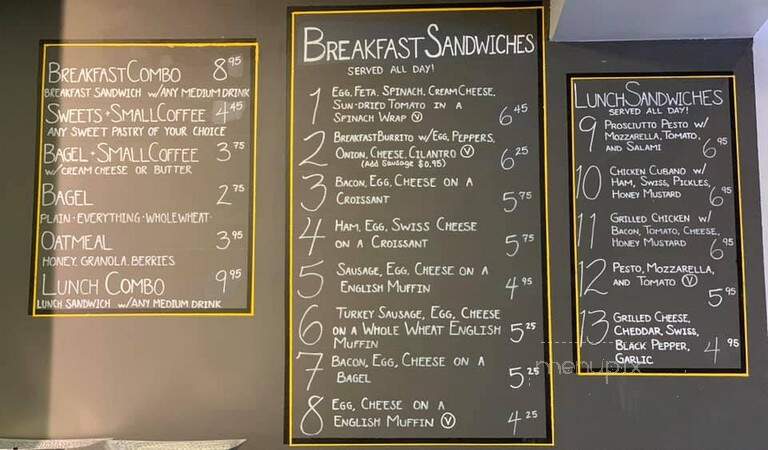 BREAKFAST COMBO 8.95
BREAKFAST SANDWICH W/ANY MEDIUM DRINK
SWEETS + SMALL COFFEE 4.45
ANY SWEET PASTRY OF YOUR CHOICE
BAGEL + SMALL COFFEE 3.75
W/CREAM CHEESE OR BUTTER
BAGEL 2.75
PLAIN · EVERYTHING · WHOLEWHEAT
OATMEAL 3.95
HONEY, GRANOLA, BERRIES
LUNCH COMBO 9.95
LUNCH SANDWICH W/ANY MEDIUM DRINK
BREAKFAST SANDWICHES
SERVED ALL DAY!
1 EGG, FETA, SPINACH, CREAM CHEESE,
SUN-DRIED TOMATO IN A
SPINACH WRAP Ⓥ 6.45
2 BREAKFAST BURRITO W/ EGG, PEPPERS,
ONION, CHEESE, CILANTRO Ⓥ 6.25
(Add Sausage $0.95)
3 BACON, EGG, CHEESE ON A
CROISSANT 5.75
4 HAM, EGG, SWISS CHEESE
ON A CROISSANT 5.75
5 SAUSAGE, EGG, CHEESE ON A
ENGLISH MUFFIN 4.95
6 TURKEY SAUSAGE, EGG, CHEESE
ON A WHOLE WHEAT ENGLISH
MUFFIN 5.25
7 BACON, EGG, CHEESE ON A
BAGEL 5.25
8 EGG, CHEESE ON A
ENGLISH MUFFIN Ⓥ 4.25
LUNCH SANDWICHES
SERVED ALL DAY!
9 PROSCIUTTO PESTO W/
MOZZARELLA, TOMATO,
AND SALAMI 6.95
10 CHICKEN CUBANO W/
HAM, SWISS, PICKLES,
HONEY MUSTARD 6.95
11 GRILLED CHICKEN W/
BACON, TOMATO, CHEESE,
HONEY MUSTARD 6.95
12 PESTO, MOZZARELLA,
AND TOMATO Ⓥ 5.95
13 GRILLED CHEESE,
CHEDDAR, SWISS,
BLACK PEPPER,
GARLIC 4.95
menupix